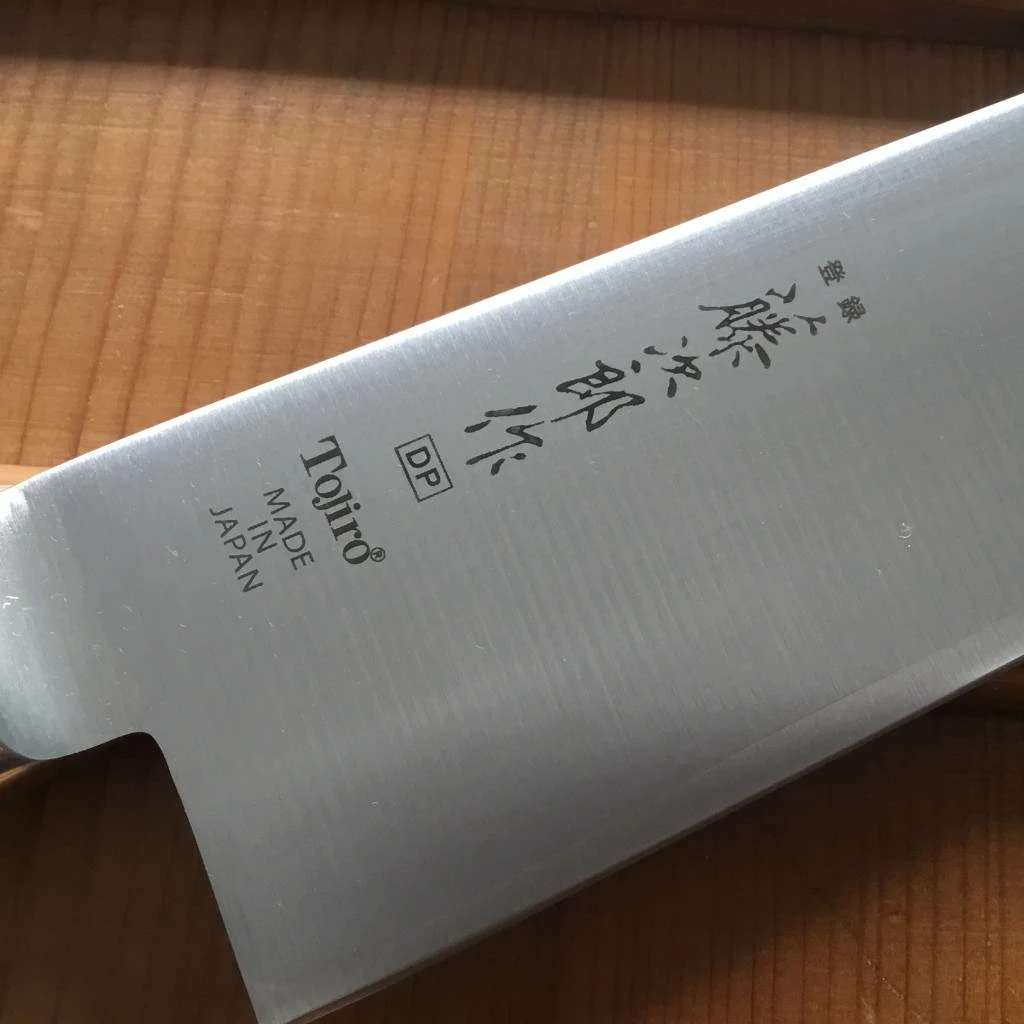 登録
藤次郎作
DP
Tojiro®
MADE
IN
JAPAN